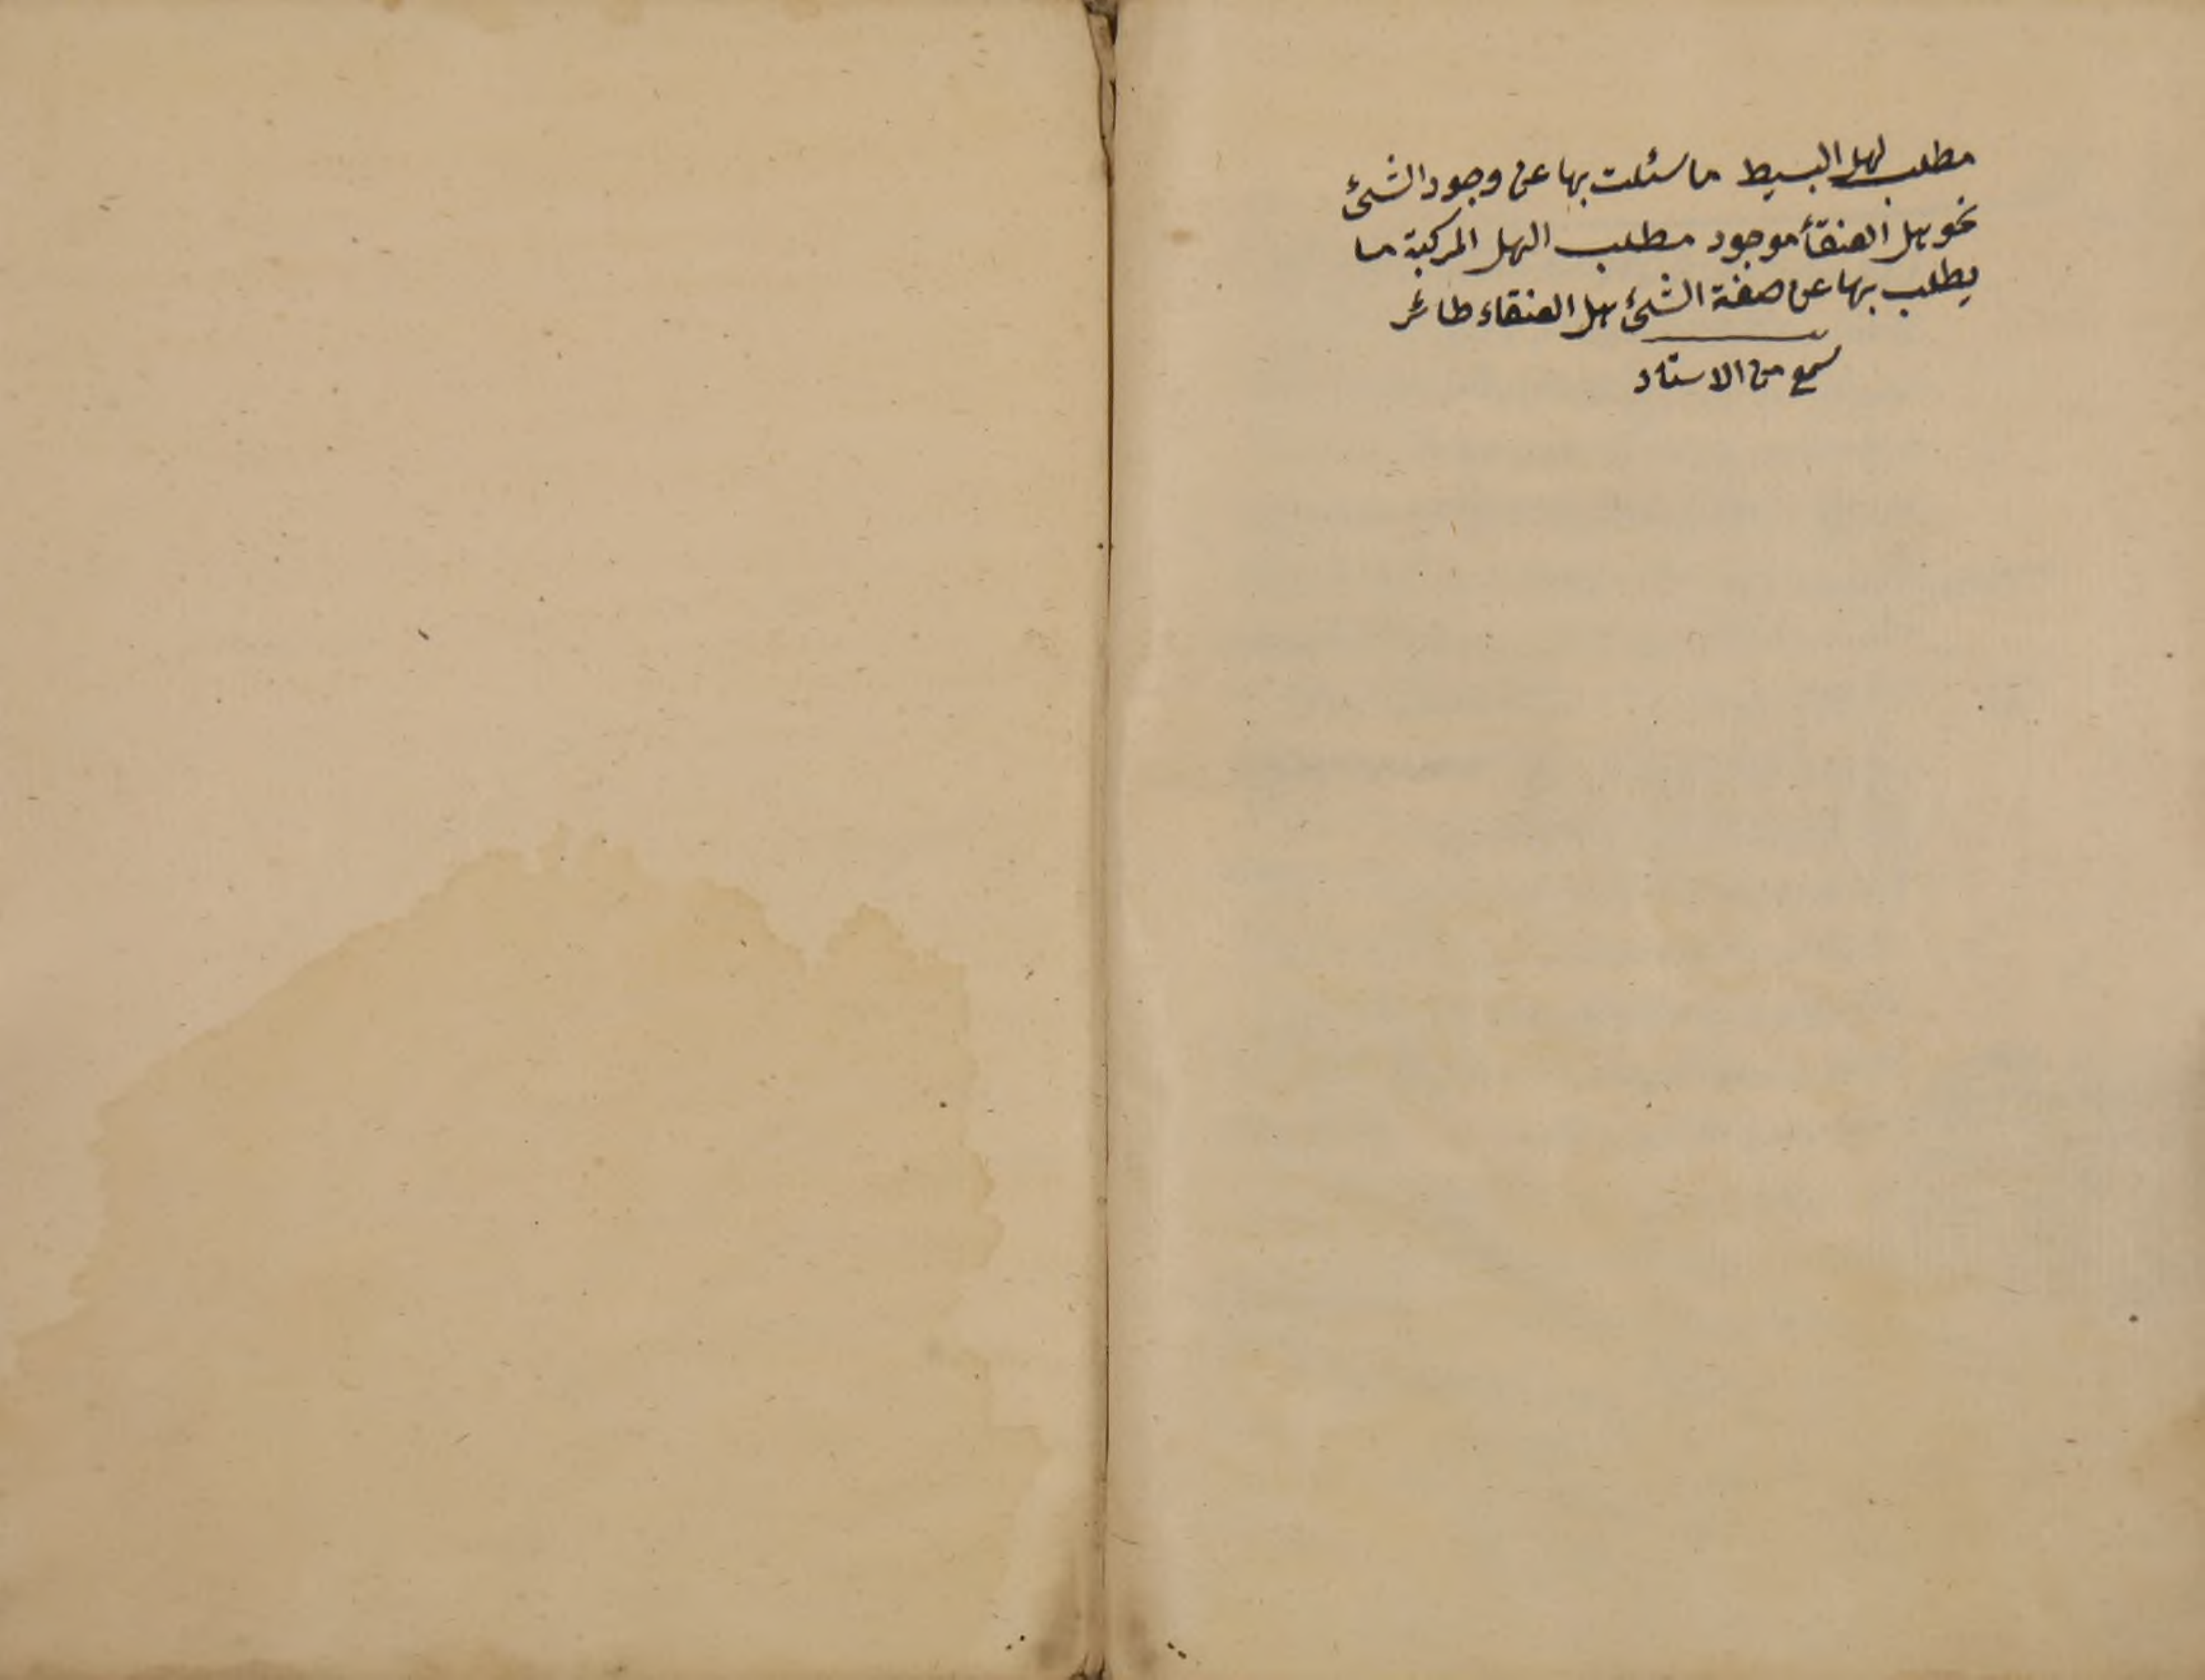 مطلب لهل البسيط ما سئلت بها عن وجود الشئ
نحو هل العنقأ موجود مطلب الهل المركبة ما
يطلب بها عن صفة الشئ هل العنقاء طائر
سمع من الاستاد